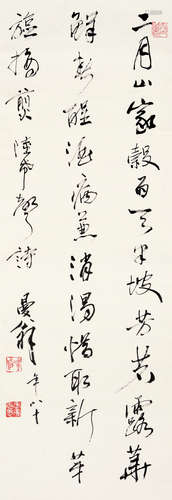 二月山家穀雨天半坡芳茗露華
鮮春醒酒病兼消渴惜取新芽
旋摘煎 陸希聲詩 年八十